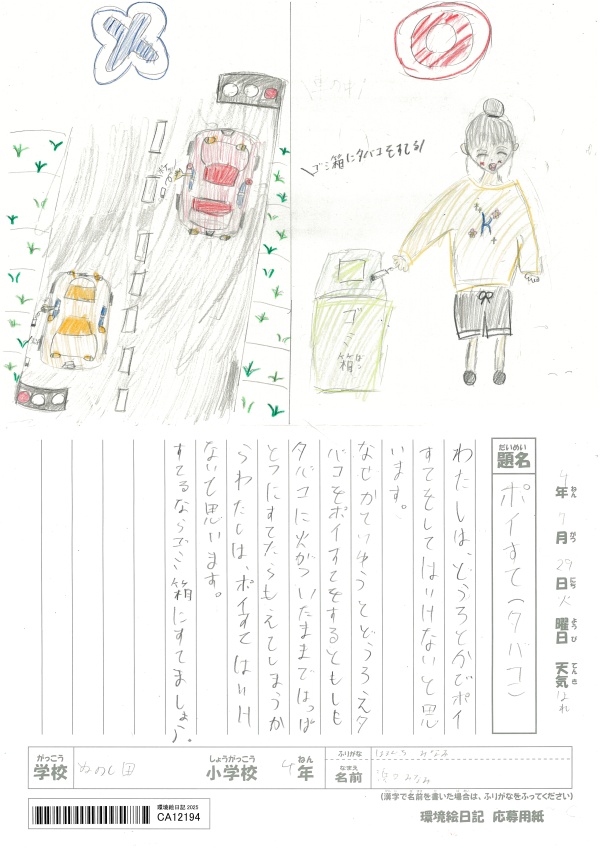 ゴミ箱にタバコをすてる
ゴミ箱
ばこ
4年 7月 29日 火曜日 天気 はれ
ねん がつ にち ようび てんき
だいめい
題名
ポイすて(タバコ)
わたしは、どうろとかでポイ
すてをしてはいけないと思
います。
なぜかてゆうとどうろえタ
バコをポイすてをするともしも
タバコに火がついたままではっぱ
とかにすてたらもえてしまうか
らわたしは、ポイすてはいけ
ないと思います。
すてるならゴミ箱にすてましょう。
がっこう
学校
しょうがっこう
小学校
ねん
4年
ふりがな
みなみ
なまえ
名前
みなみ
(漢字で名前を書いた場合は、ふりがなをふってください)
環境絵日記 2025
CA12194
環境絵日記 応募用紙